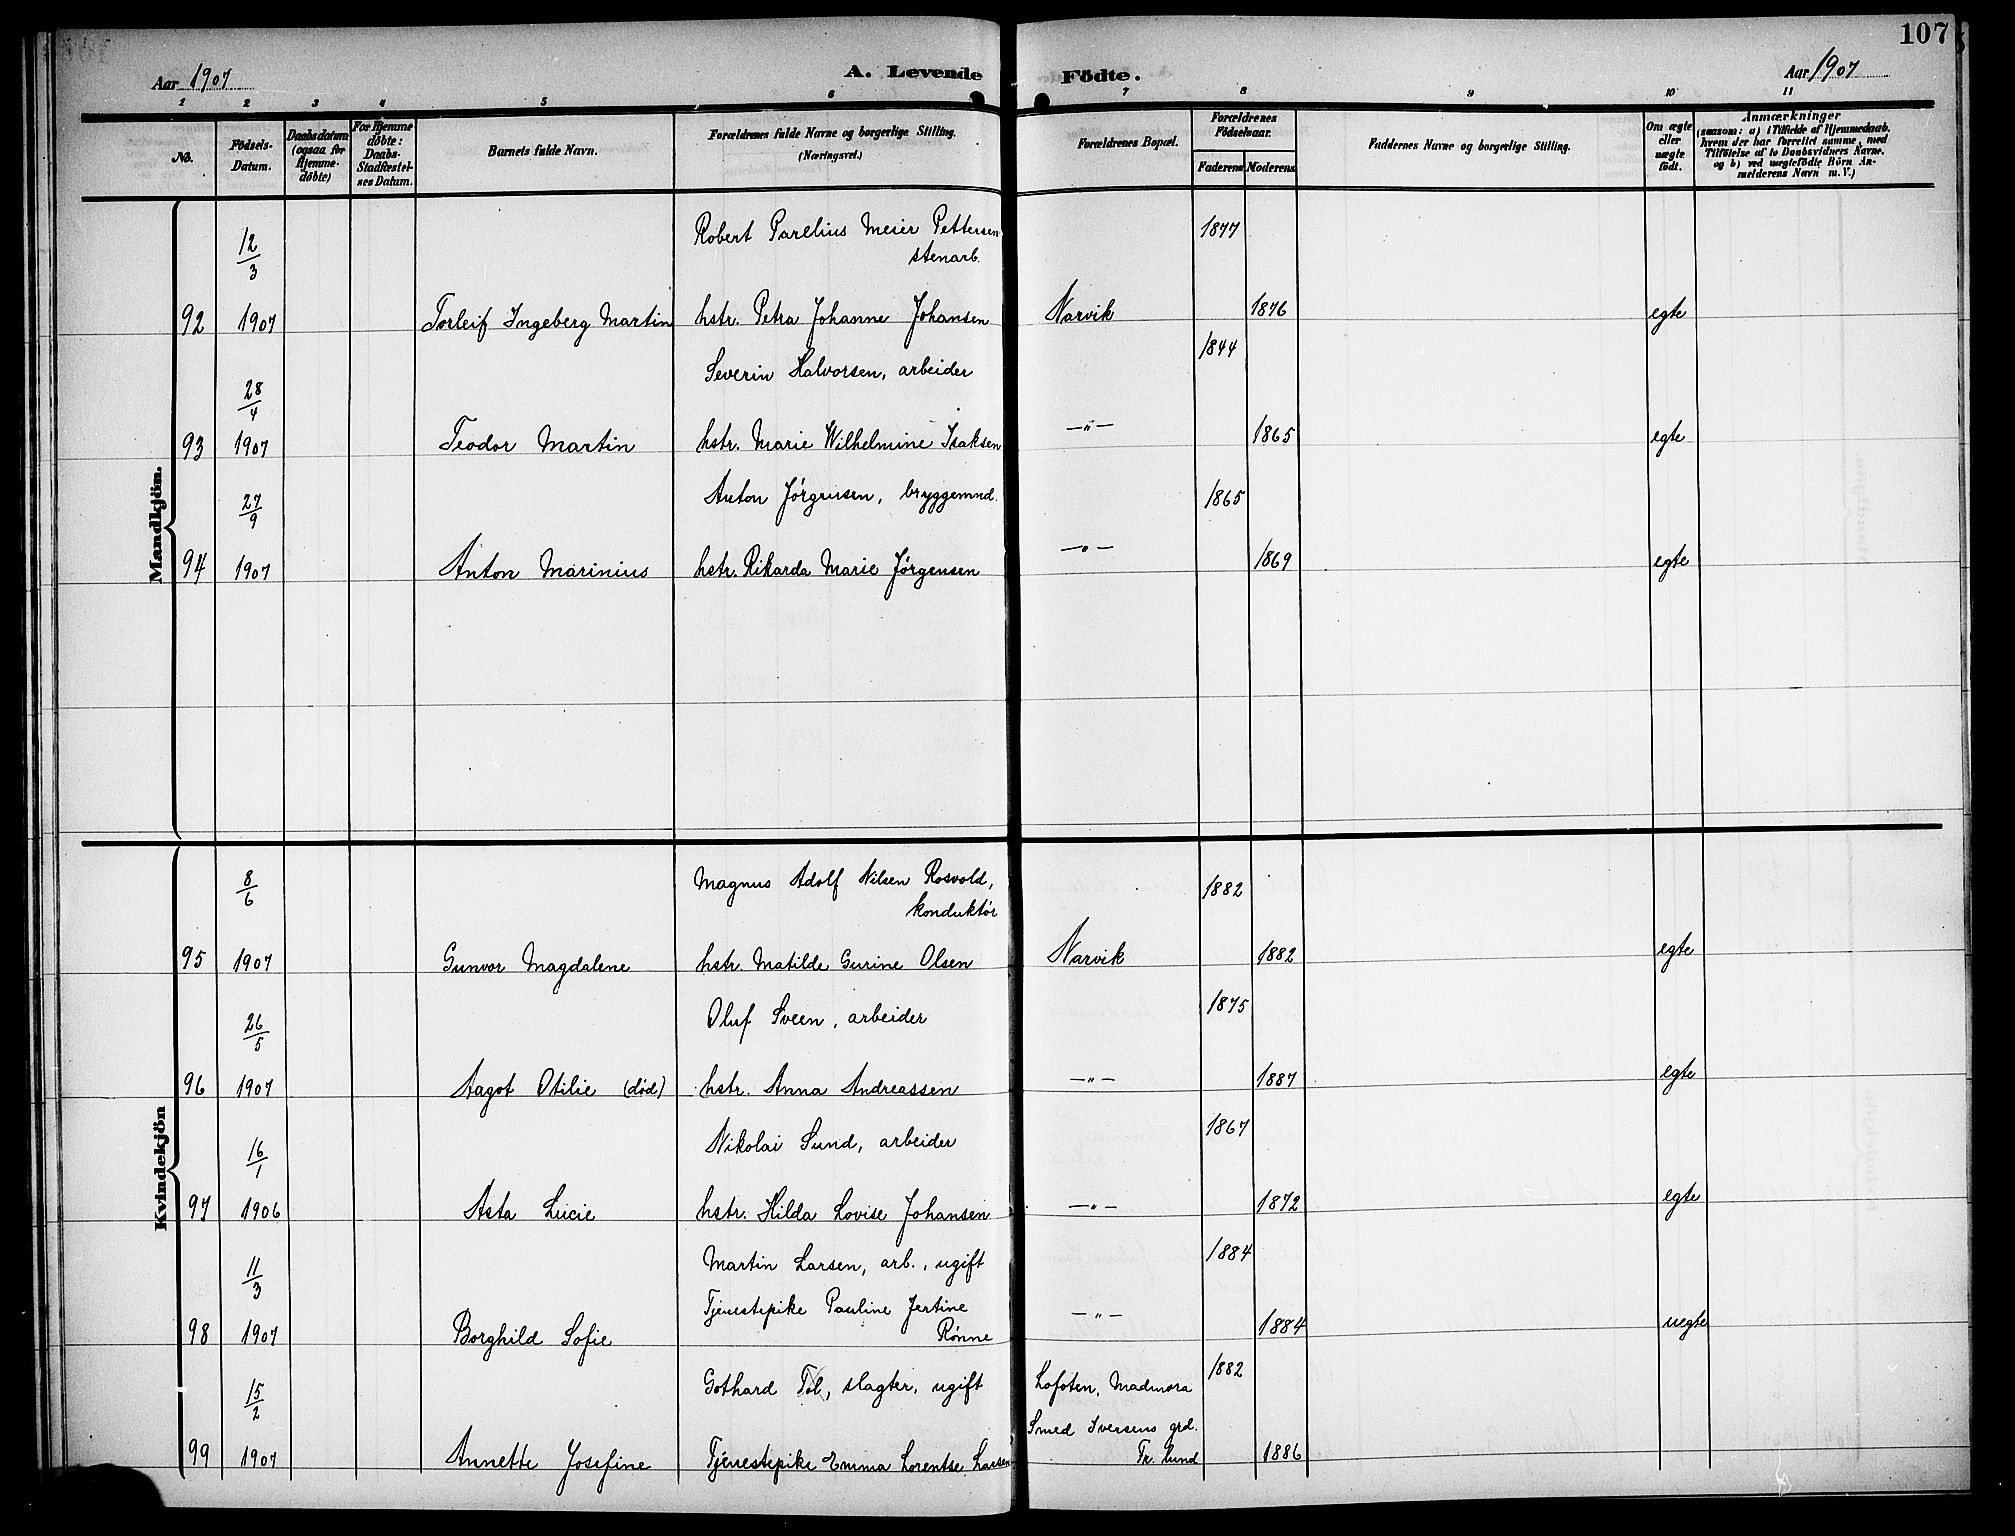 107
Aar 1907
A. Levende Födte.
Aar 1907
1 2 3 4 5 6 7 8 9 10 11
No.
Födsels-Datum.
Daabsdatum (ogsaa for Hjemme-döbte)
For Hjemme döbte: Daabs-Stadfæstel-ses Datum.
Barnets fulde Navn.
Forældrenes fulde Navne og borgerlige Stilling. (Næringsvei.)
Forældrenes Bopæl.
Forældrenes Födselsaar.
Faderens Moderens
Faddernes Navne og borgerlige Stilling.
Om ægte eller uægte födt.
Anmærkninger
(saasom: a) i Tilfælde af Hjemmedaab,
hvem der har forrettet samme, med
Tilföielse af to Daabsvidners Navne,
og b) ved uægtefödte Börn An-
melderens Navn m. V.)
Mandkjön.
12/3 Robert Parelius Meier Pettersen 1877
stenarb.
92 1907 Torleif Ingeberg Martin hstr. Petra Johanne Johansen Narvik 1876 egte
28/4 Severin Halvorsen, arbeider 1844
93 1907 Teodor Martin hstr. Marie Wilhelmine Isaksen —"— 1865 egte
27/9 Anton Jørgensen, bryggemnd. 1865
94 1907 Anton Marinius hstr. Rikarda Marie Jørgensen —"— 1869 egte
Kvindekjön
8/6 Magnus Adolf Nilsen Rosvold, 1882
konduktør
95 1907 Gunvor Magdalene hstr. Matilde Gurine Olsen Narvik 1882 egte
26/5 Oluf Sveen, arbeider 1875
96 1907 Aagot Otilie (død) hstr. Anna Andreassen —"— 1887 egte
16/1 Nikolai Sund, arbeider 1867
97 1906 Asta Lucie hstr. Hilda Lovise Johansen —"— 1872 egte
11/3 Martin Larsen, arb., ugift 1884
Tjenestepike Pauline Jertine —"—
98 1907 Borghild Sofie Rønne 1884 uegte
15/2 Gothard Tøl, slagter, ugift Lofoten, Madmora 1882
Smed Iversens grd.
99 1907 Annette Josefine Tjenestepike Emma Lorentse Larsen Fr. lund 1886